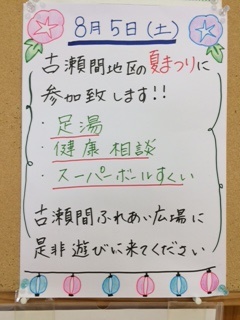 8月5日(土)
古瀬間地区の夏まつりに
参加致します!!
・足湯
・健康相談
・スーパーボールすくい
古瀬間ふれあい広場に
是非遊びに来てください